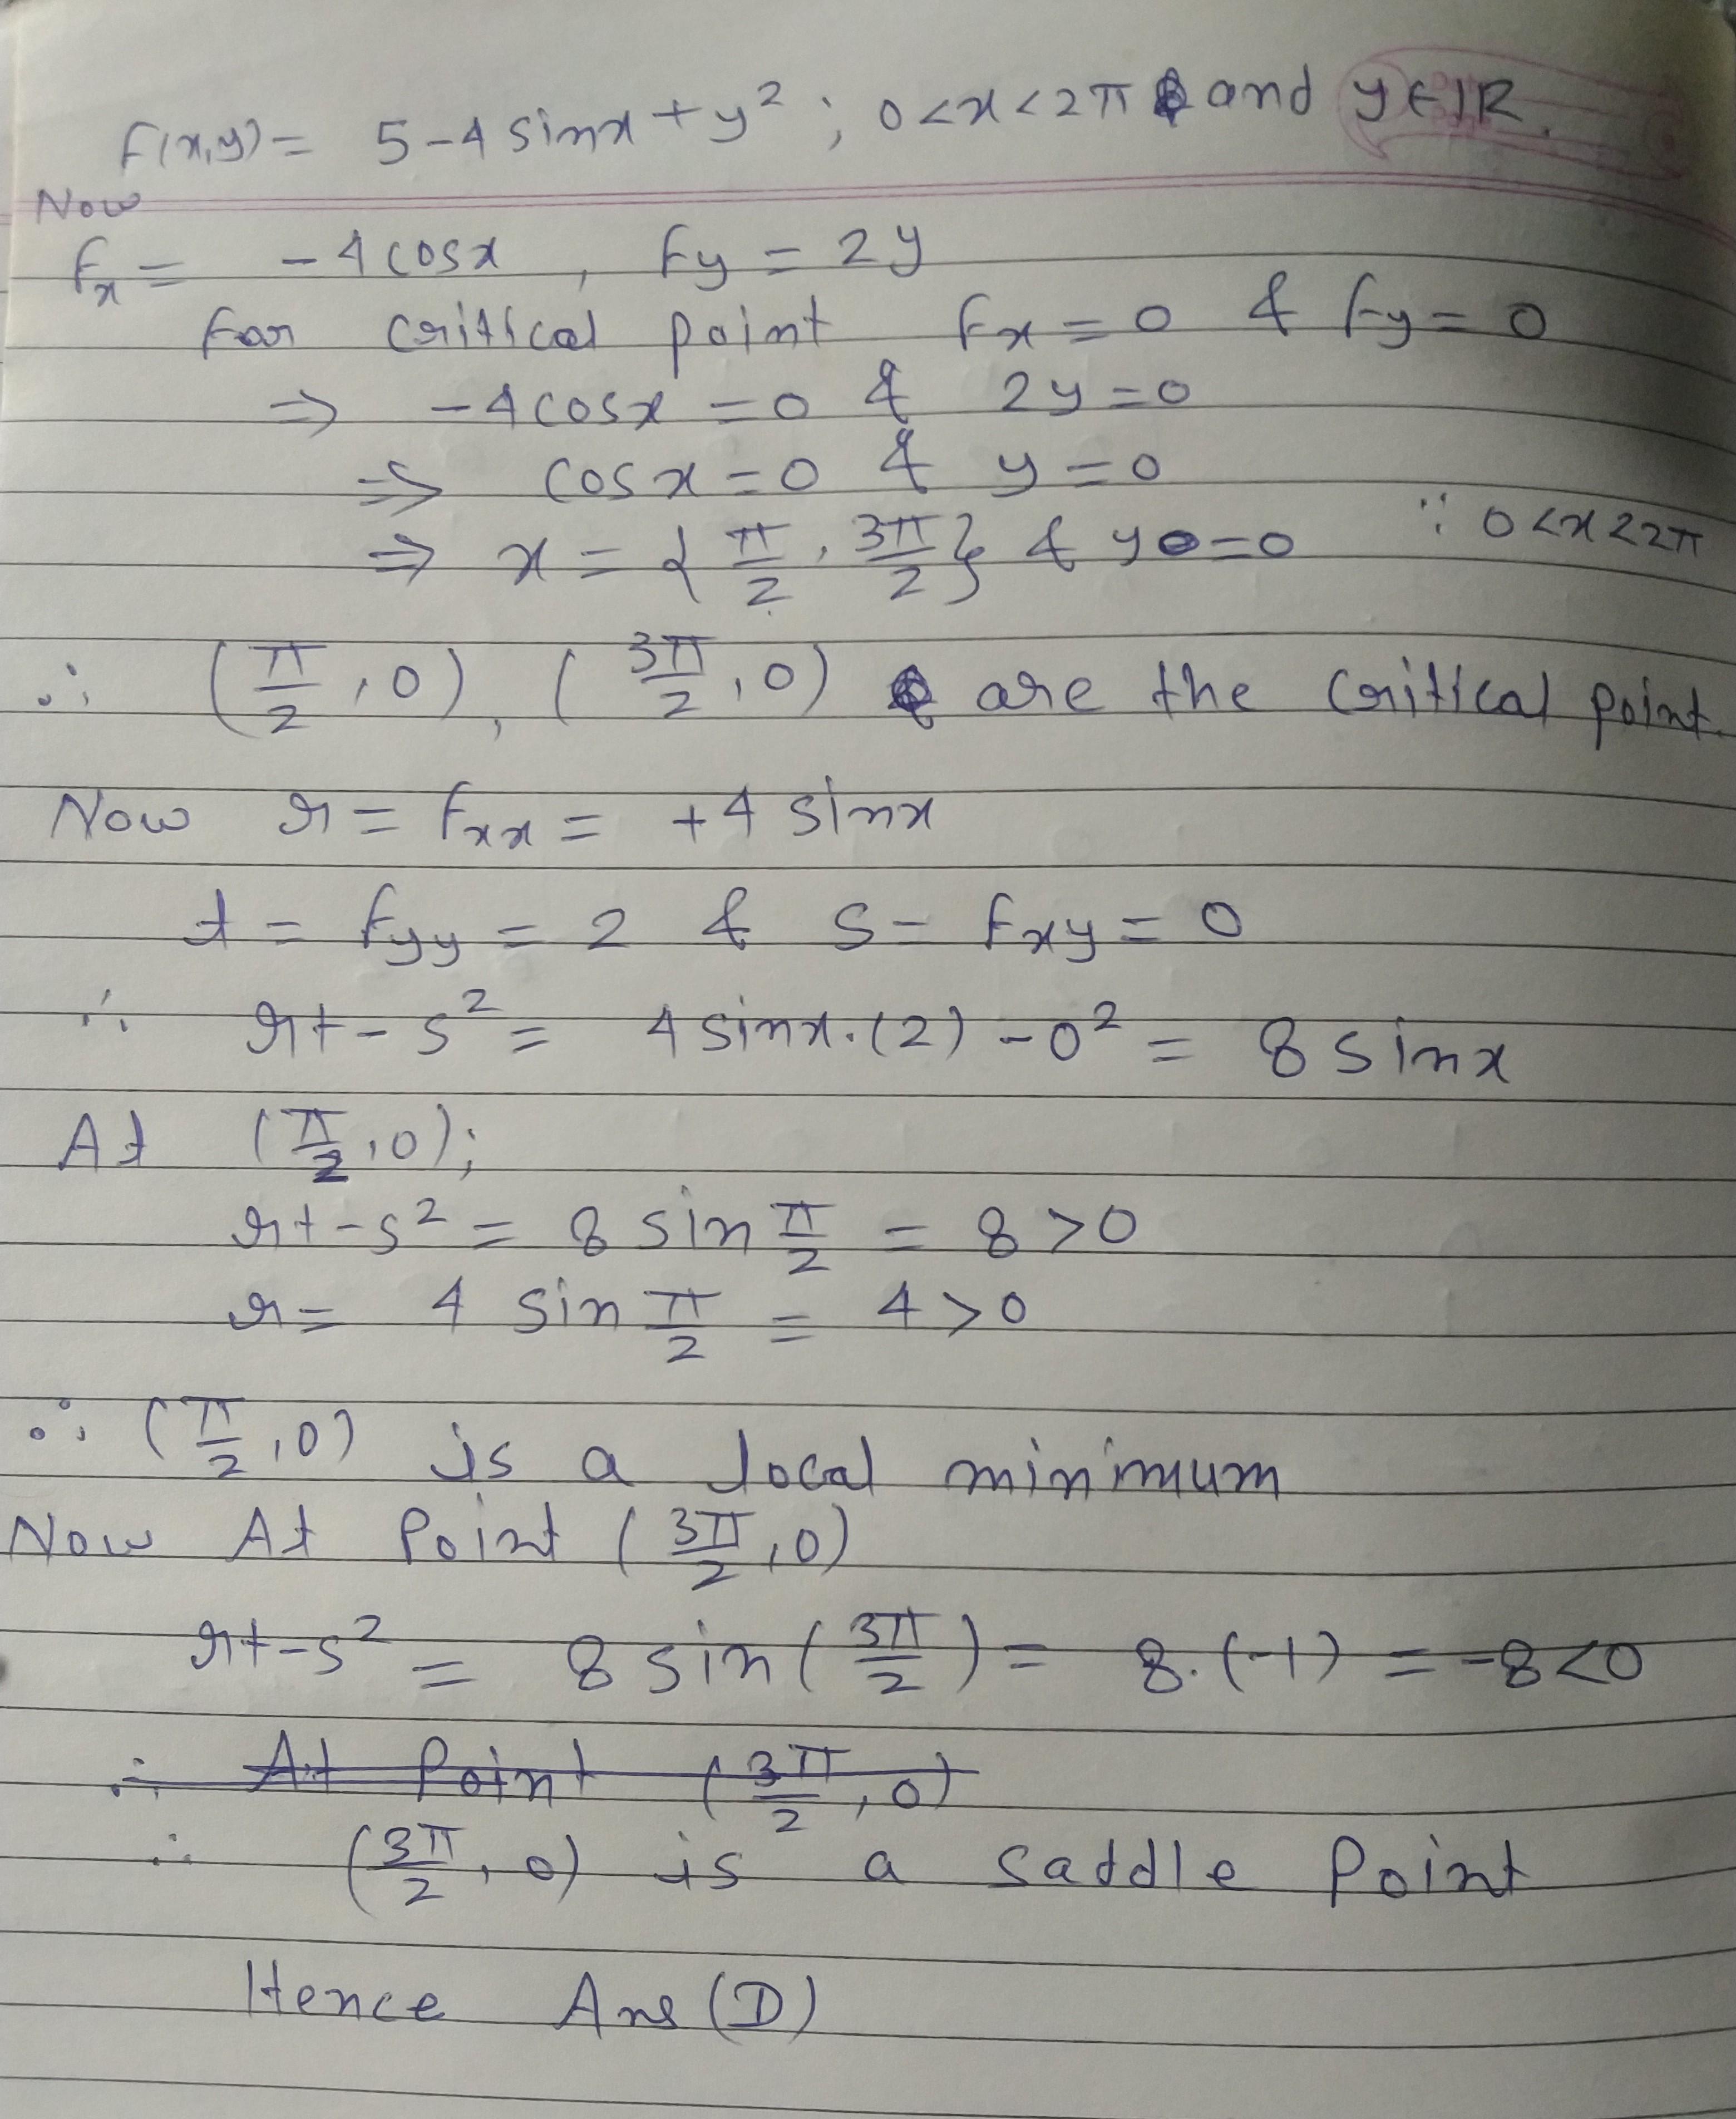 f(x,y) = 5-4 sinx + y² ; 0<x<2π and y∈IR.
Now
fx = -4cosx , fy = 2y
for critical point fx = 0 & fy = 0
⇒ -4cosx = 0 & 2y = 0
⇒ cosx = 0 & y = 0
⇒ x = {π/2, 3π/2} & y = 0 ∵ 0<x<2π
∴ (π/2, 0), (3π/2, 0) are the critical point.
Now r = fxx = +4 sinx
t = fyy = 2 & s = fxy = 0
∴ rt-s² = 4 sinx.(2) - 0² = 8 sinx
At (π/2, 0);
rt-s² = 8 sin π/2 = 8 >0
r = 4 sin π/2 = 4 >0
∴ (π/2, 0) is a local minimum
Now At Point (3π/2, 0)
rt-s² = 8 sin(3π/2) = 8.(-1) = -8<0
∴ At Point (3π/2, 0)
∴ (3π/2, 0) is a saddle Point
Hence Ans (D)